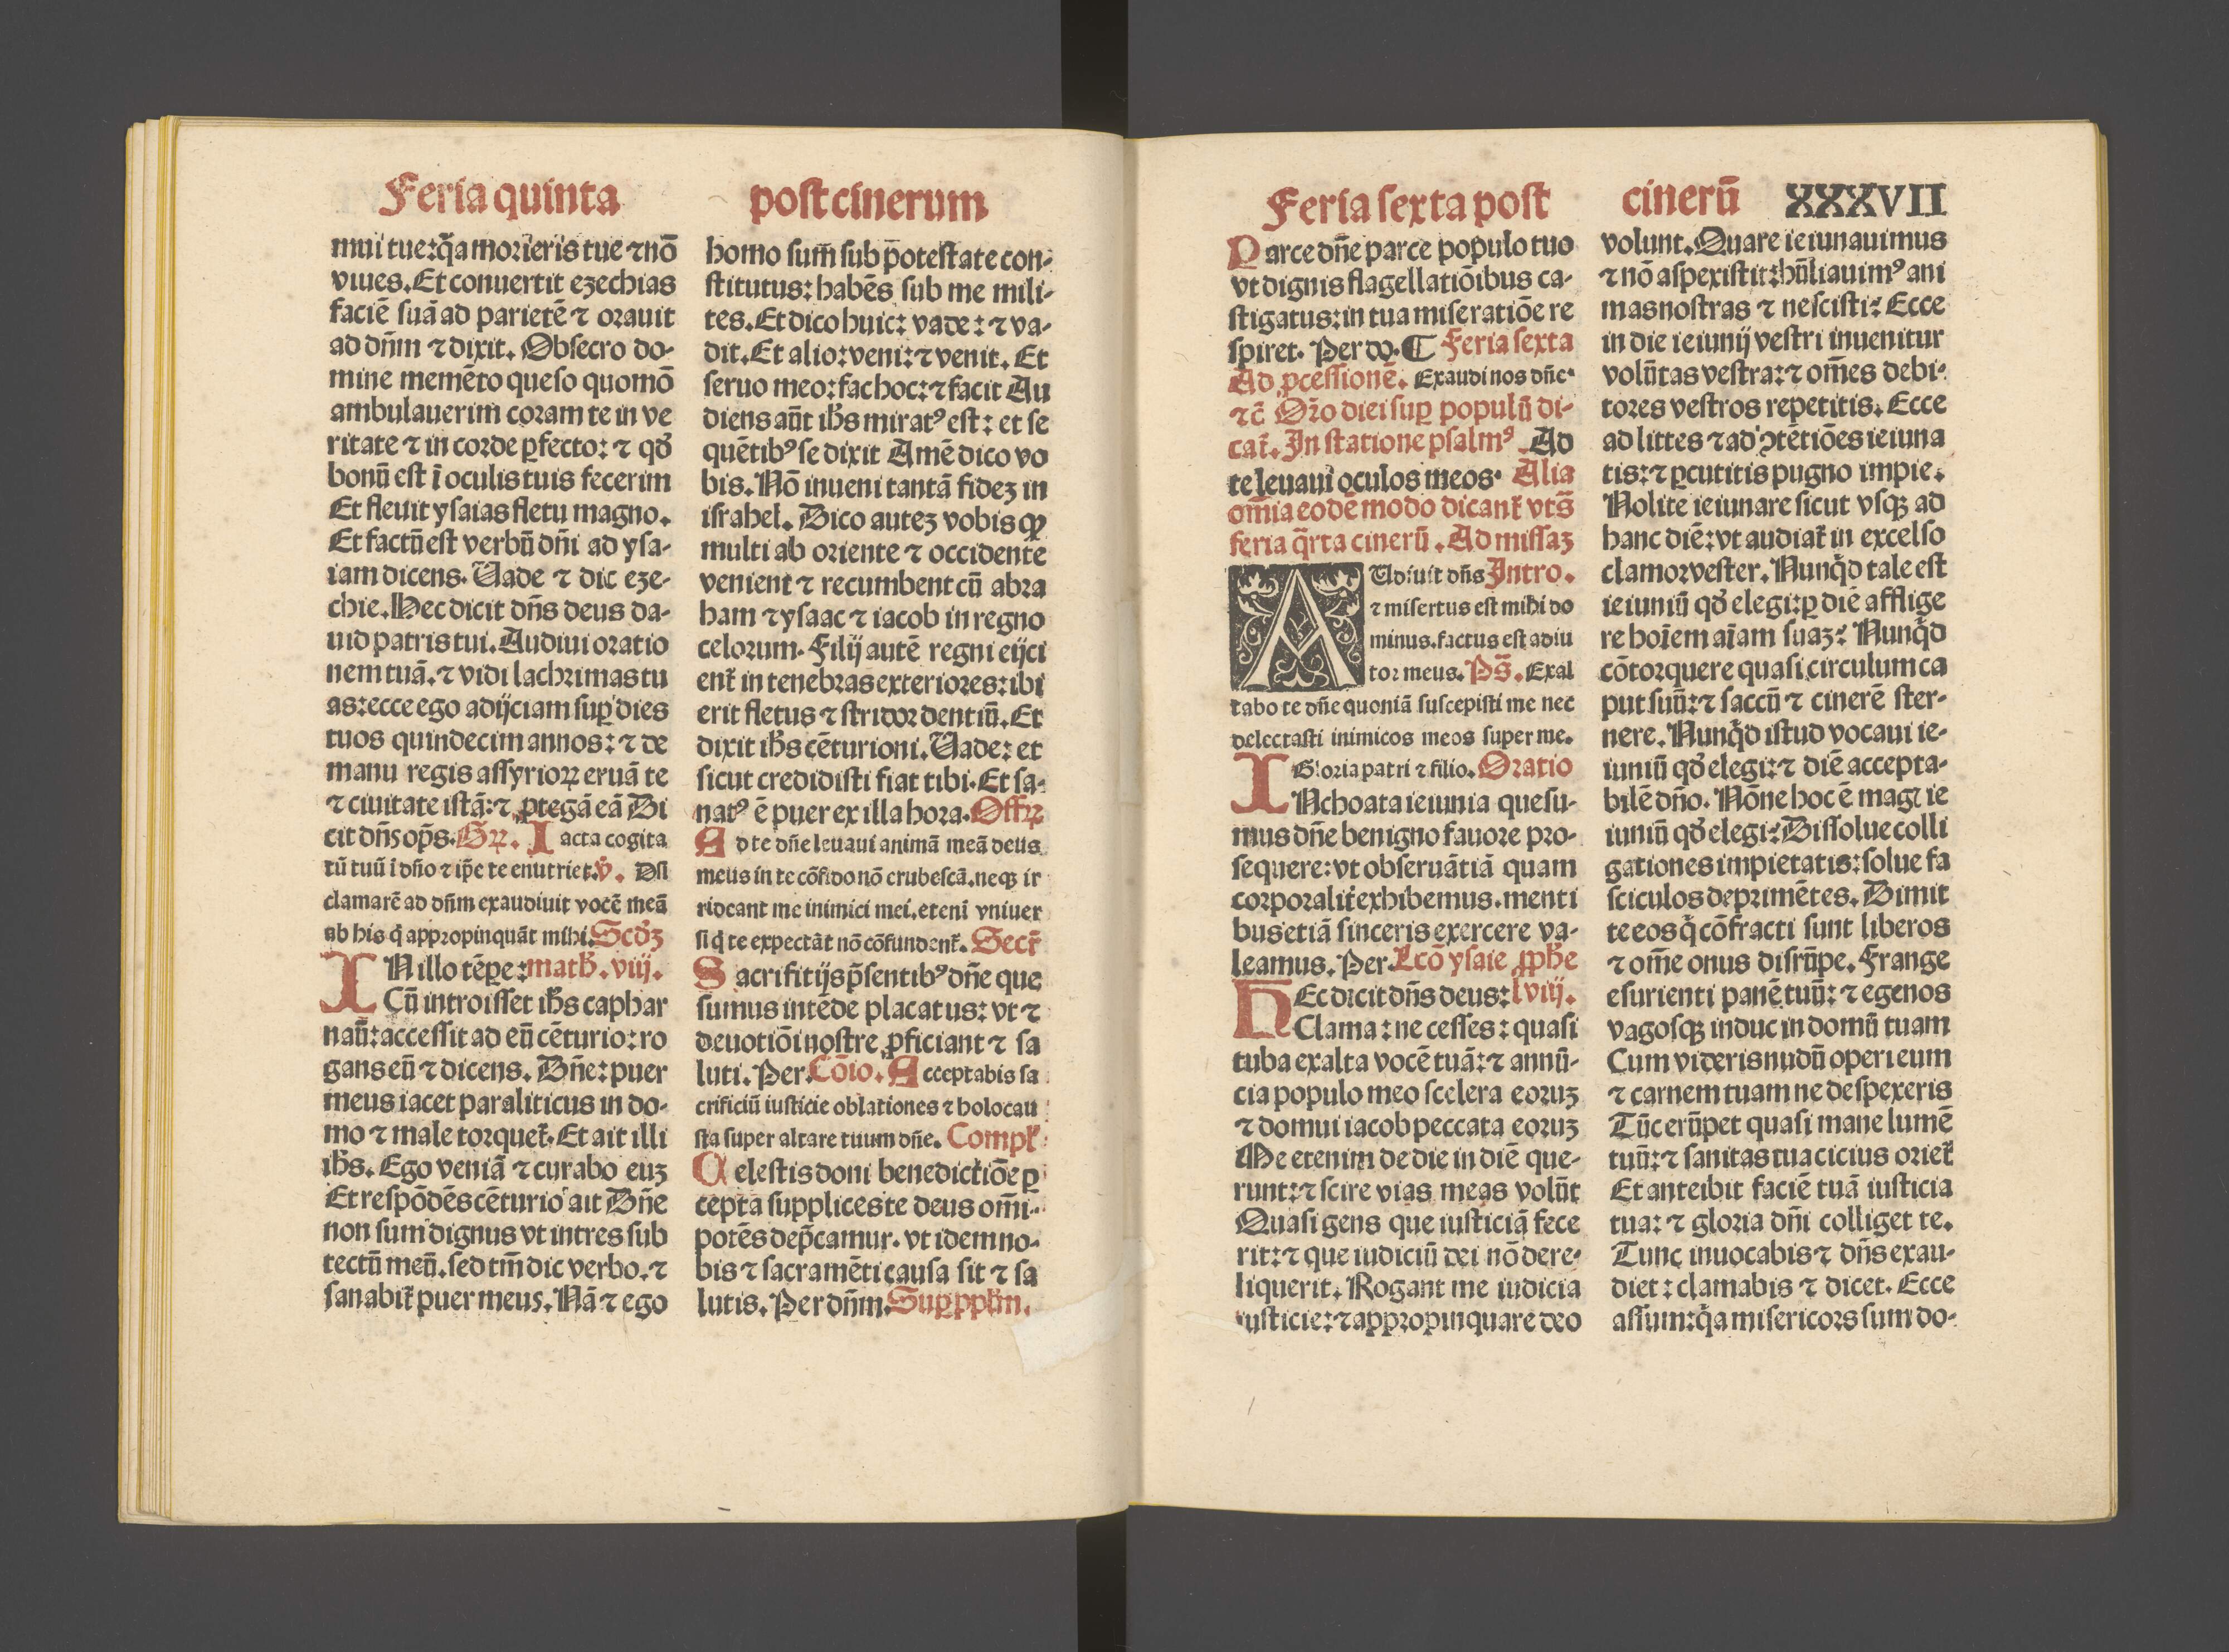 Feria quinta
mui tue: q̃a morieris tue ⁊ nō
viues. Et conuertit ezechias
faciē suā ad parietē ⁊ orauit
ad dñm ⁊ dixit. Obsecro do-
mine memēto queso quomō
ambulauerim coram te in ve
ritate ⁊ in corde ꝑfecto: ⁊ qđ
bonū est ī oculis tuis fecerim
Et fleuit ysaias fletu magno.
Et factū est verbū dñi ad ysa-
iam dicens. Uade ⁊ dic eze-
chie. Hec dicit dñs deus da-
uid patris tui. Audiui oratio
nem tuā. ⁊ vidi lachrimas tu
as: ecce ego adijciam suꝑ dies
tuos quindecim annos: ⁊ de
manu regis assyrioꝝ eruā te
⁊ ciuitate istā: ⁊ ꝓtegā eā Di
cit dñs op̄s. Gꝝ. Iacta cogita
tū tuū ī dño ⁊ ip̄e te enutriet. v̄. Dū
clamarē ad dñm exaudiuit vocē meā
ab his q̄ appropinquāt mihi. Scđʒ
IN illo tēꝑe: math̄. viij.
Cū introisset ih̄s caphar
naū: accessit ad eū cēturio: ro
gans eū ⁊ dicens. Dñe: puer
meus iacet paraliticus in do-
mo ⁊ male torquet᷑. Et ait illi
ih̄s. Ego veniā ⁊ curabo euʒ
Et respōdēs cēturio ait Dñe
non sum dignus vt intres sub
tectū meū. sed tm̄ dic verbo. ⁊
sanabit᷑ puer meus. Nā ⁊ ego
post cinerum
homo sum̄ sub p̄otestate con-
stitutus: habēs sub me mili-
tes. Et dico huic: vade: ⁊ va-
dit. Et alio: veni: ⁊ venit. Et
seruo meo: fac hoc: ⁊ facit Au
diens aūt ih̄s miratꝰ est: et se
quētibꝰ se dixit Amē dico vo
bis. Nō inueni tantā fideʒ in
israhel. Dico auteʒ vobis ꝙ
multi ab oriente ⁊ occidente
venient ⁊ recumbent cū abra
ham ⁊ ysaac ⁊ iacob in regno
celorum. Filij autē regni eijci
ent᷑ in tenebras exteriores: ibi
erit fletus ⁊ stridor dentiū. Et
dixit ih̄s cēturioni. Uade: et
sicut credidisti fiat tibi. Et sa-
natꝰ ē puer ex illa hora. Offꝝ
Ad te dñe leuaui animā meā deus
meus in te cōfido nō erubescā. neqꝫ ir
rideant me inimici mei. etenī vniuer
si q̄ te expectāt nō cōfundent᷑. Secr̄
Sacrifitijs p̄sentibꝰ dñe que
sumus intēde placatus: vt ⁊
deuotiōi nostre ꝓficiant ⁊ sa
luti. Per. Cōio. Acceptabis sa
crificiū iusticie oblationes ⁊ holocau
sta super altare tuum dñe. Compl᷑
Celestis doni benedictiōe ꝑ
cepta supplices te deus om̄i-
potēs dep̄camur. vt idem no-
bis ⁊ sacramēti causa sit ⁊ sa
lutis. Per dñm. Suꝑ pplm̄.
Feria sexta post
Parce dñe parce populo tuo
vt dignis flagellatiōibus ca-
stigatus: in tua miseratiōe re
spiret. Per do. ⸿ Feria sexta
Ad ꝓcessionē. Exaudi nos dñe.
⁊c̄ Or̄o diei suꝑ populū di-
cat᷑. In statione psalmꝰ Ad
te leuaui oculos meos. Alia
om̄ia eodē modo dicant᷑ vts̄
feria q̄rta cinerū. Ad missaʒ
AUdiuit dñs Intro.
⁊ misertus est mihi do
minus. factus est adiu
tor meus. Ps̄. Exal
tabo te dñe quoniā suscepisti me nec
delectasti inimicos meos super me.
Gloria patri ⁊ filio. Oratio
INchoata ieiunia quesu-
mus dñe benigno fauore pro-
sequere: vt obseruātiā quam
corporalit᷑ exhibemus. menti
bus etiā sinceris exercere va-
leamus. Per. Lcō ysaie ꝓph̄e
HEc dicit dñs deus: lviij.
Clama: ne cesses: quasi
tuba exalta vocē tuā: ⁊ annū-
cia populo meo scelera eoruʒ
⁊ domui iacob peccata eoruʒ
Me etenim de die in diē que-
runt: ⁊ scire vias meas volūt
Quasi gens que iusticiā fece
rit: ⁊ que iudiciū dei nō dere-
liquerit. Rogant me iudicia
iusticie: ⁊ appropinquare deo
cinerū XXXVII
volunt. Quare ieiunauimus
⁊ nō aspexisti: hūliauimꝰ ani
mas nostras ⁊ nescisti: Ecce
in die ieiunij vestri inuenitur
volūtas vestra: ⁊ om̄es debi-
tores vestros repetitis. Ecce
ad littes ⁊ ad ↄtētiōes ieiuna
tis: ⁊ ꝑcutitis pugno impie.
Nolite ieiunare sicut vsqꝫ ad
hanc diē: vt audiat᷑ in excelso
clamor vester. Nunq̄d tale est
ieiuniū qđ elegi: ꝑ diē afflige
re hoīem aīam suaʒ: Nunq̄d
cōtorquere quasi circulum ca
put suū: ⁊ saccū ⁊ cinerē ster-
nere. Nunq̄d istud vocaui ie-
iuniū qđ elegi: ⁊ diē accepta-
bilē dño. Nōne hoc ē magꝭ ie
iuniū qđ elegi: Dissolue colli
gationes impietatis: solue fa
sciculos deprimētes. Dimit
te eos q̄ cōfracti sunt liberos
⁊ om̄e onus disrūpe. Frange
esurienti panē tuū: ⁊ egenos
vagosqꝫ induc in domū tuam
Cum videris nudū operi eum
⁊ carnem tuam ne despexeris
Tūc erūpet quasi mane lumē
tuū: ⁊ sanitas tua cicius oriet᷑
Et anteibit faciē tuā iusticia
tua: ⁊ gloria dñi colliget te.
Tunc inuocabis ⁊ dñs exau-
diet: clamabis ⁊ dicet. Ecce
assum: q̄a misericors sum do-